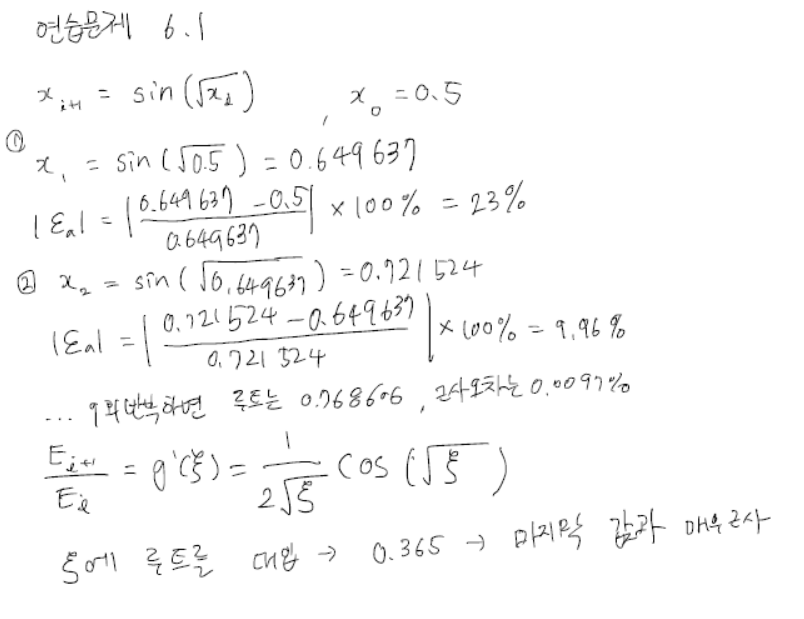 연습문제 6.1
x_{i+1} = sin(√x_i) , x_0 = 0.5
① x_1 = sin(√0.5) = 0.649637
|ε_a| = |(0.649637 - 0.5)/0.649637| × 100% = 23%
② x_2 = sin(√0.649637) = 0.721524
|ε_a| = |(0.721524 - 0.649637)/0.721524| × 100% = 9.96%
... 9회반복하면 루트는 0.768606, 근사오차는 0.0097%
E_{i+1}/E_i = g'(ξ) = 1/(2√ξ) cos(√ξ)
ξ에 루트를 대입 → 0.365 → 마지막 값과 매우 근사